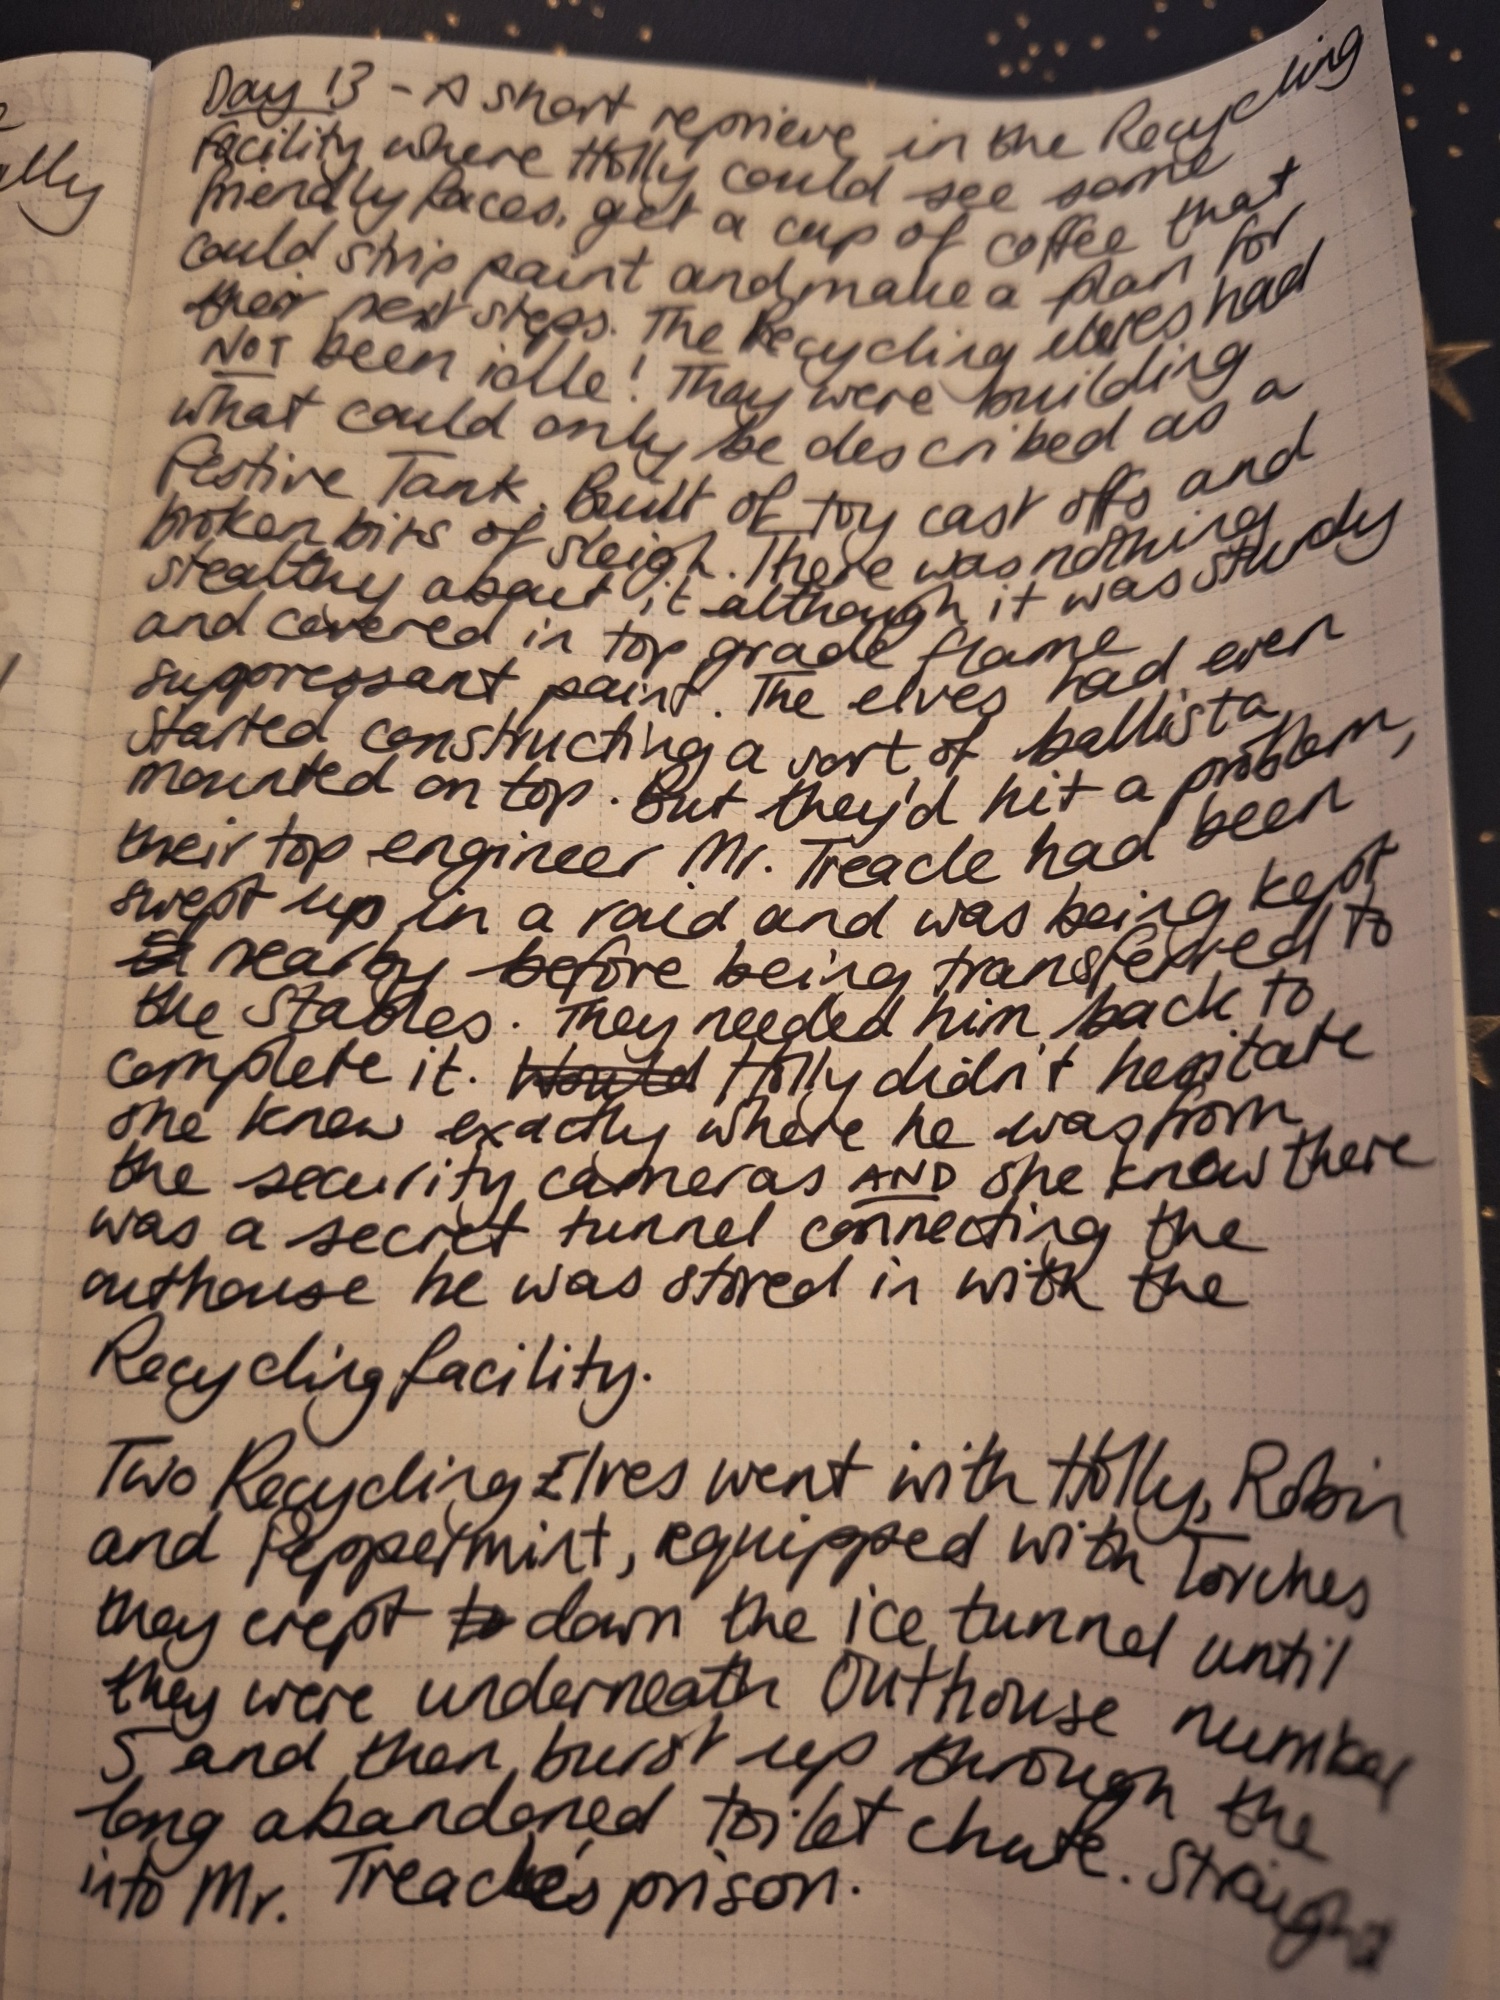 ally
Day 13 - A short reprieve in the Recycling
facility where Holly could see some
friendly faces, get a cup of coffee that
could strip paint and make a plan for
their next steps. The Recycling elves had
NOT been idle! They were building
what could only be described as a
Festive Tank. Built of toy cast offs and
broken bits of sleigh. There was nothing
stealthy about it although it was sturdy
and covered in top grade flame
suppressant paint. The elves had even
started constructing a sort of ballista
mounted on top. But they'd hit a problem,
their top engineer Mr. Treacle had been
swept up in a raid and was being kept
nearby before being transferred to
the Stables. They needed him back to
complete it. Would Holly didn't hesitate
she knew exactly where he was from
the security cameras AND she knew there
was a secret tunnel connecting the
outhouse he was stored in with the
Recycling facility.
Two Recycling Elves went with Holly, Robin
and Peppermint, equipped with Torches
they crept to down the ice tunnel until
they were underneath Outhouse number
5 and then burst up through the
long abandoned toilet chute. Straight
into Mr. Treacle's prison.